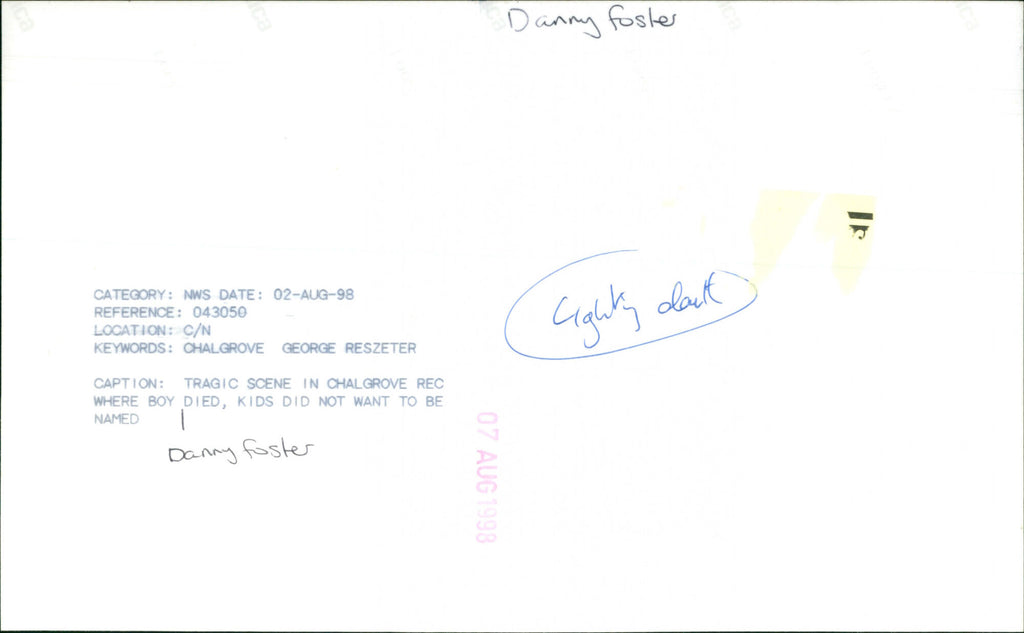 Danny Foster
CATEGORY: NWS DATE: 02-AUG-98
REFERENCE: 043050
LOCATION: C/N
KEYWORDS: CHALGROVE GEORGE RESZETER
CAPTION: TRAGIC SCENE IN CHALGROVE REC
WHERE BOY DIED, KIDS DID NOT WANT TO BE
NAMED
Danny Foster
07 AUG 1998